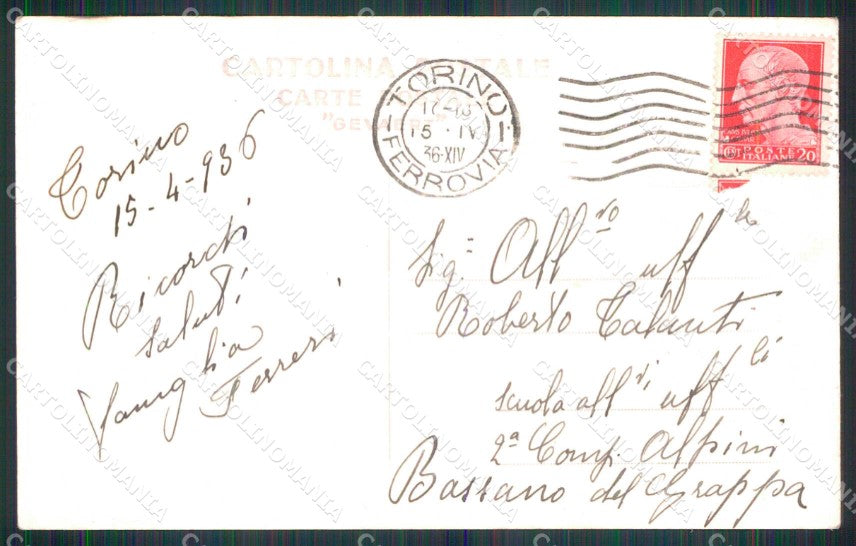 CARTOLINA POSTALE
CARTE
"GEVAERT"
TORINO
17-18
15 · IV
36-XIV
FERROVIA
POSTE
ITALIANE 20
Torino
15-4-936
Ricordi
saluti
famiglia
Ferreri
Sig. All.vo uff.le
Roberto Talanti
scuola all.vi uff.li
2ª Comp. Alpini
Bassano del Grappa
CARTOLINOMANIA